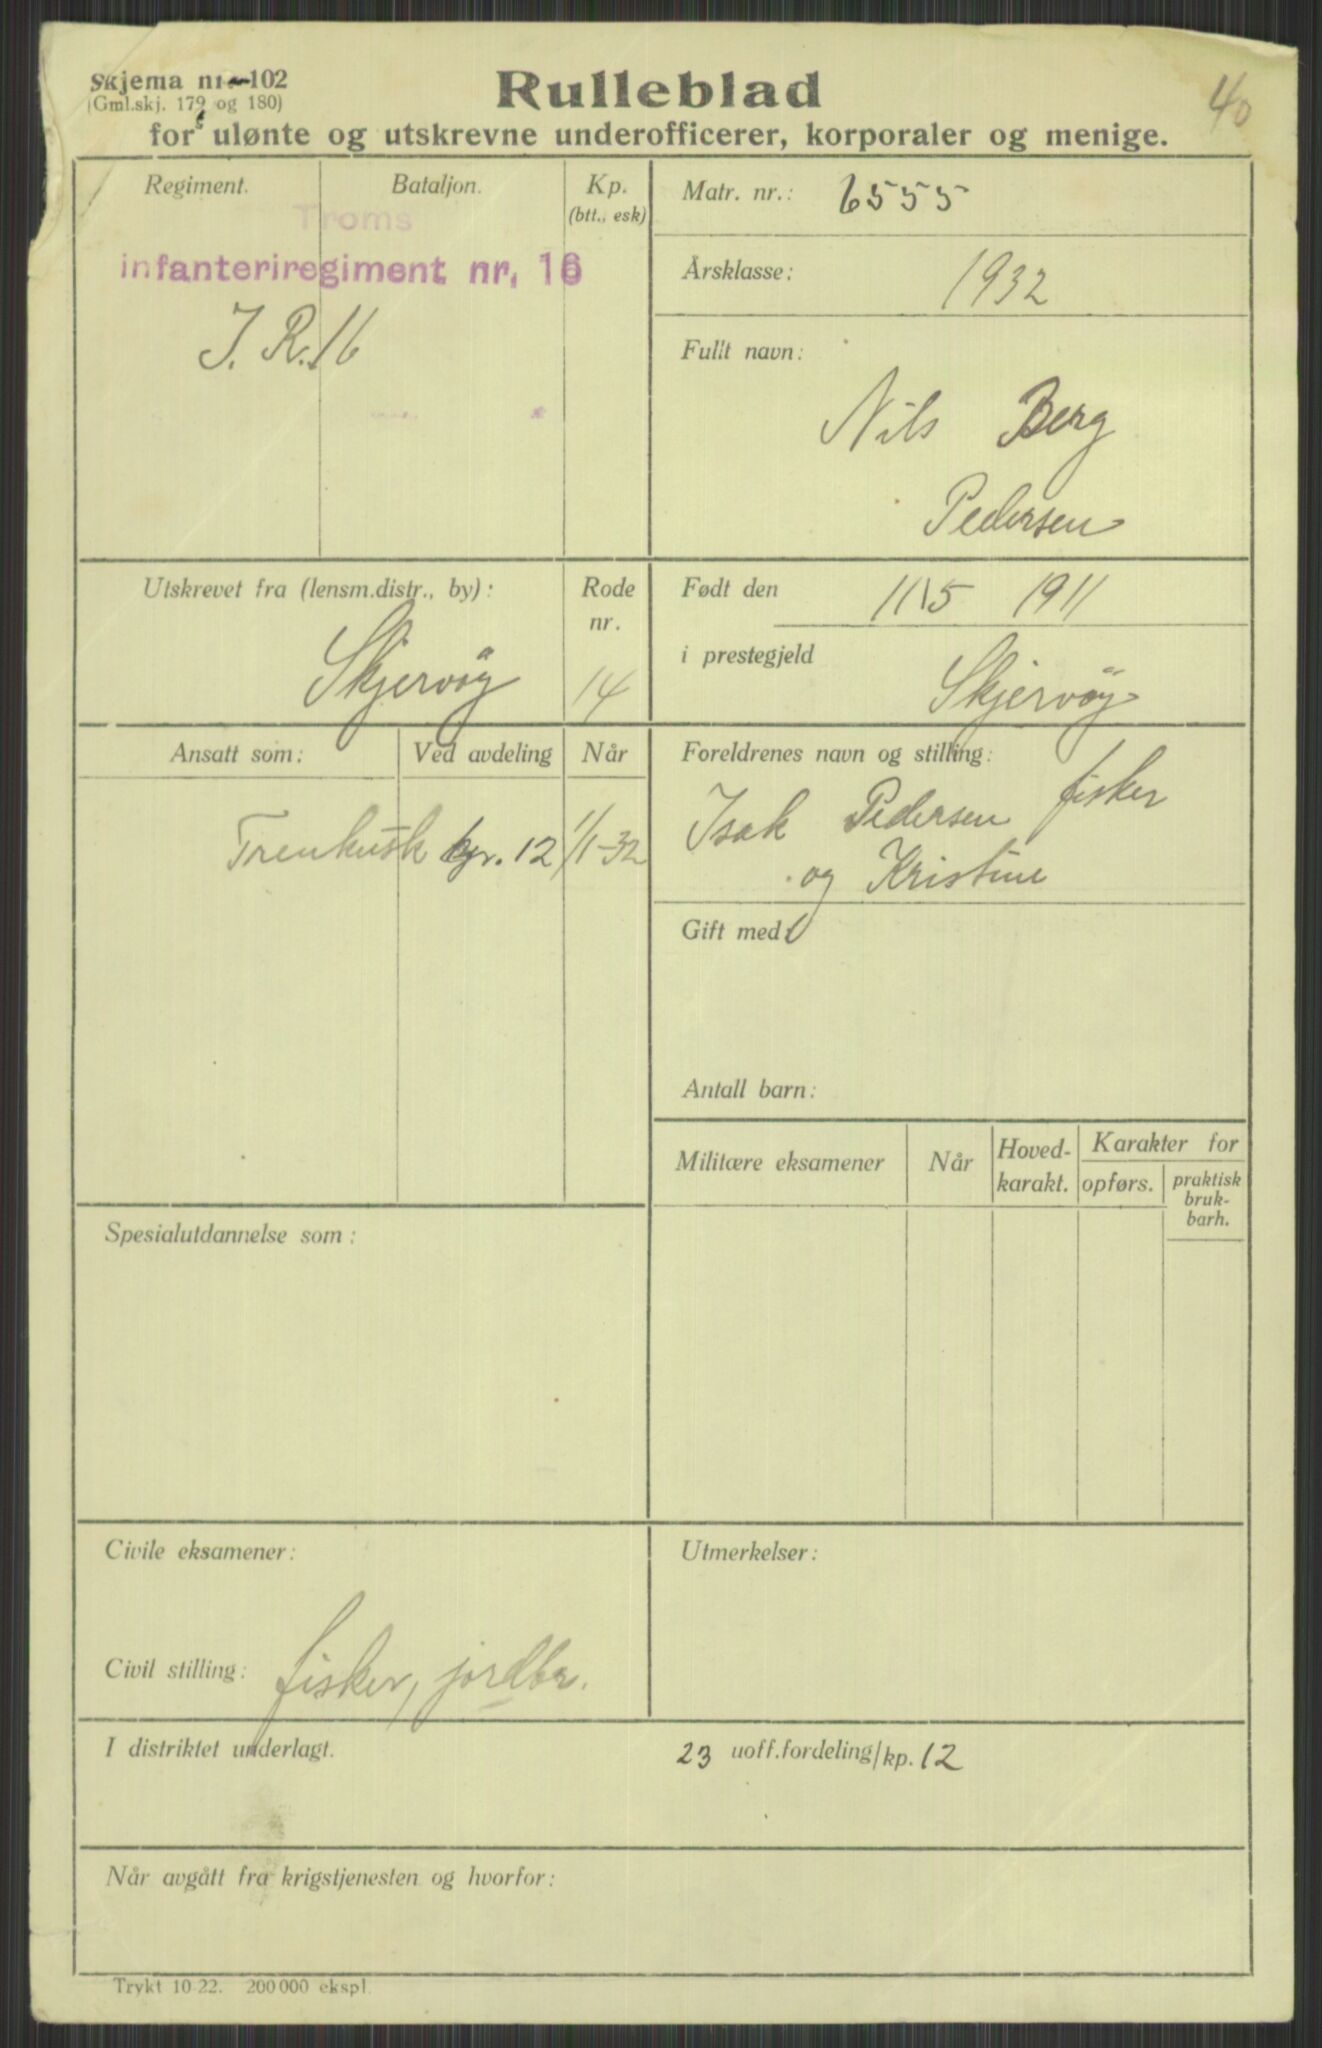 Skjema nr. 102
(Gml.skj. 179 og 180)
Rulleblad
40
for ulønte og utskrevne underofficerer, korporaler og menige.
Regiment.
Bataljon.
Kp.
(btt., esk)
Troms
infanteriregiment nr. 16
J. R. 16
Matr. nr.: 6555
Årsklasse: 1932
Fullt navn:
Nils Berg
Pedersen
Utskrevet fra (lensm.distr., by):
Skjervöy
Rode
nr.
14
Født den 11/5 1911
i prestegjeld
Skjervöy
Ansatt som:
Ved avdeling
Når
Trenkusk kp. 12 1/1-32
Foreldrenes navn og stilling:
Isak Pedersen fisker
og Kristine
Gift med:
Antall barn:
Militære eksamener
Når
Hoved-
karakt.
Karakter for
opførs.
praktisk
bruk-
barh.
Spesialutdannelse som:
Civile eksamener:
Civil stilling: fisker, jordbr.
Utmerkelser:
I distriktet underlagt.
23 uoff.fordeling/kp. 12
Når avgått fra krigstjenesten og hvorfor:
Trykt 10 22. 200 000 ekspl.